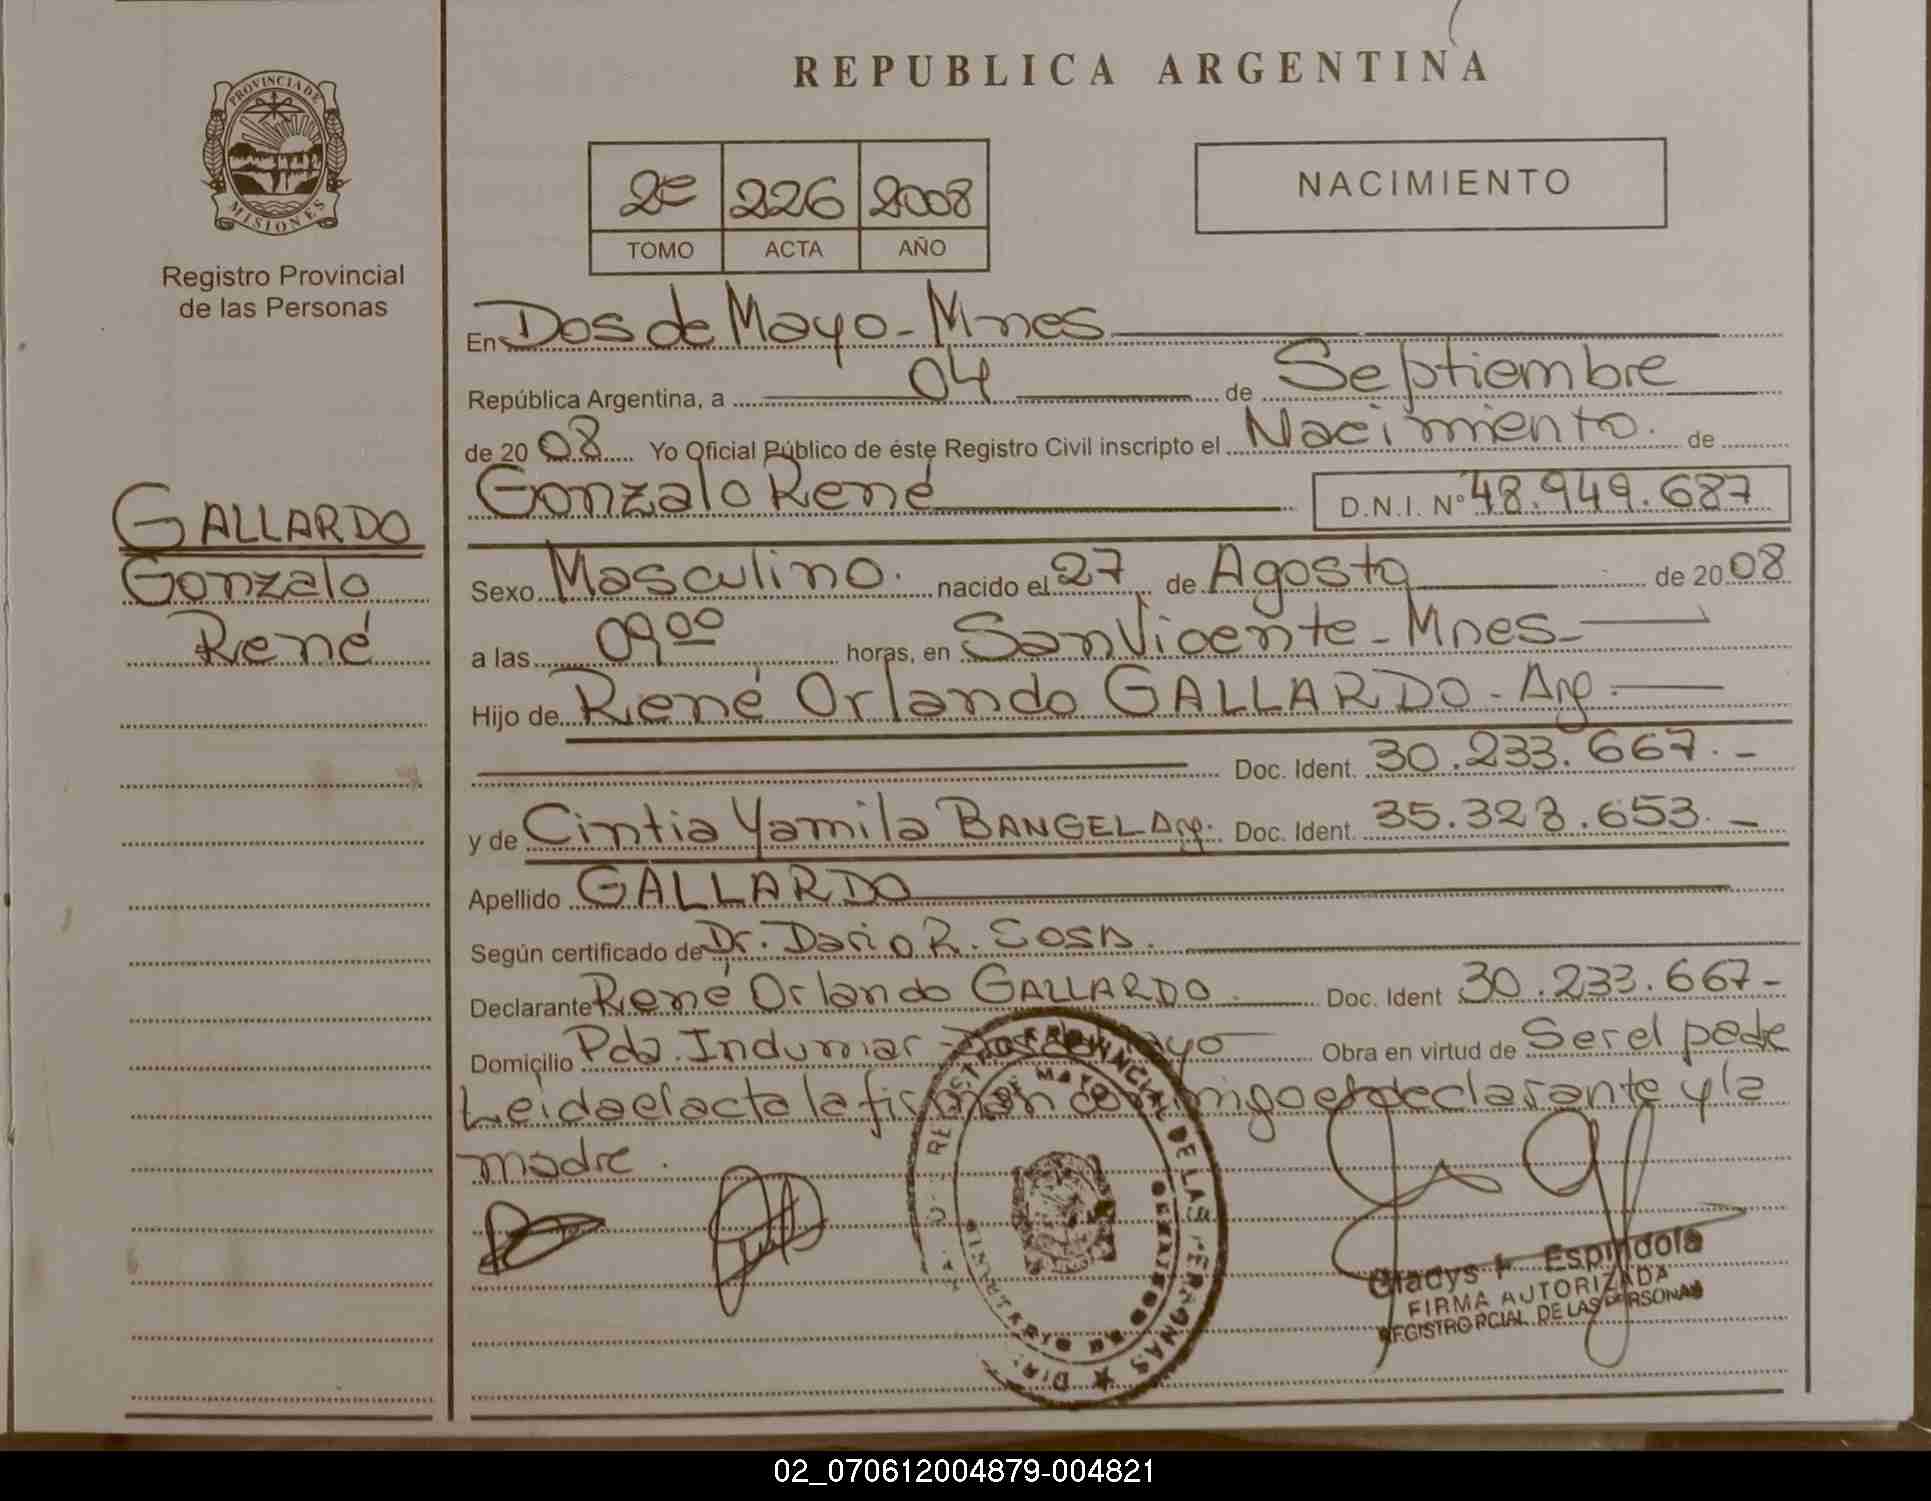 REPUBLICA ARGENTINA
PROVINCIA DE
MISIONES
Registro Provincial
de las Personas
2º 226 2008
TOMO ACTA AÑO
NACIMIENTO
GALLARDO
Gonzalo
René
En Dos de Mayo - Mnes
República Argentina, a 04 de Septiembre
de 20 08 Yo Oficial Público de éste Registro Civil inscripto el Nacimiento. de
Gonzalo René D.N.I. Nº 48.949.687
Sexo Masculino. nacido el 27 de Agosto de 20 08
a las 09 00 horas, en San Vicente - Mnes -
Hijo de René Orlando GALLARDO - Arg.
Doc. Ident. 30.233.667. -
y de Cintia Yamila BANGEL Arg. Doc. Ident. 35.328.653. -
Apellido GALLARDO
Según certificado de Dr. Dario R. SOSA.
Declarante René Orlando GALLARDO Doc. Ident 30.233.667 -
Domicilio Pda. Indumar - Dos de Mayo Obra en virtud de Ser el padre
Leida el acta la firman conmigo el declarante y la
madre.
Gladys Espindola
FIRMA AUTORIZADA
REGISTRO PCIAL. DE LAS PERSONAS
02_070612004879-004821